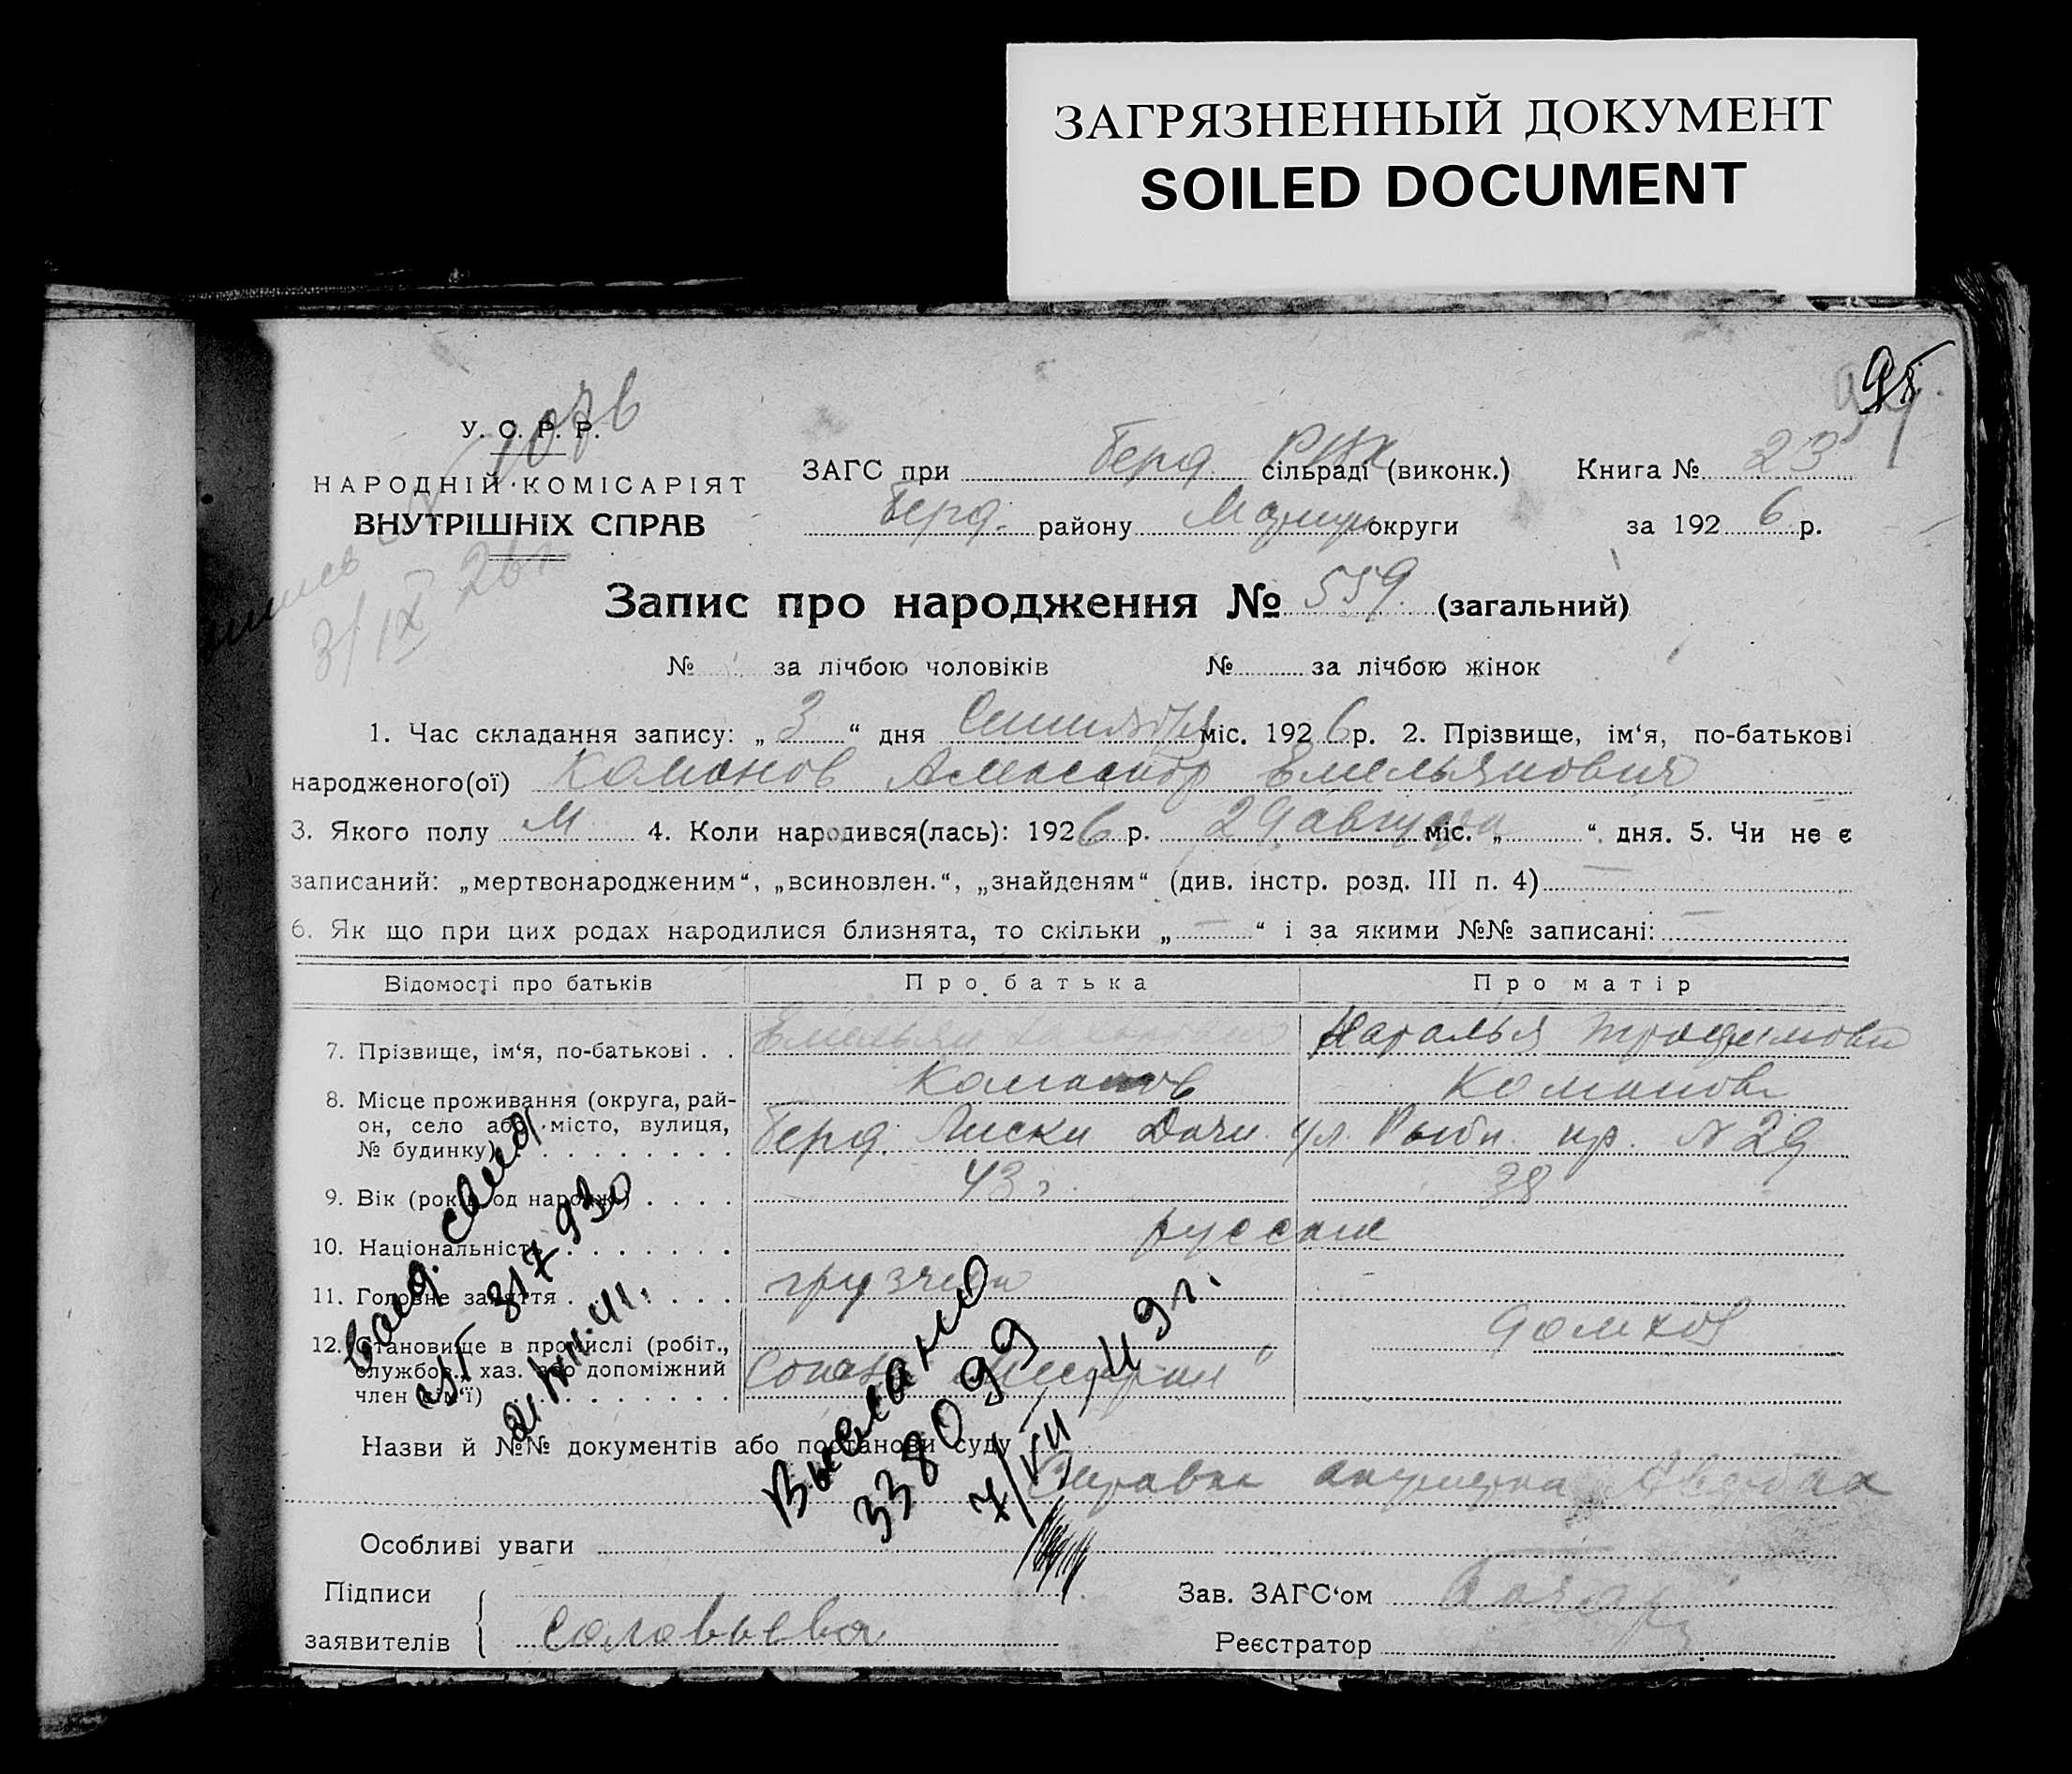 ЗАГРЯЗНЕННЫЙ ДОКУМЕНТ
SOILED DOCUMENT
У. С. Р. Р.
НАРОДНІЙ КОМІСАРІЯТ
ВНУТРІШНІХ СПРАВ
3/IX 26г.
ЗАГС при Берд. РИК сільраді (виконк.) Книга № 23
Берд. району Мариуп округи за 1926 р.
Запис про народження № 559 (загальний)
№ за лічбою чоловіків № за лічбою жінок
1. Час складання запису: „ 3 “ дня Сентября міс. 1926 р. 2. Прізвище, ім‘я, по-батькові
народженого(ої) Команов Александр Емельянович
3. Якого полу М 4. Коли народився(лась): 1926 р. 29 августа міс. „ “ дня. 5. Чи не є
записаний: „мертвонародженим“, „всиновлен.“, „знайденям“ (див. інстр. розд. III п. 4) —
6. Як що при цих родах народилися близнята, то скільки „ — “ і за якими №№ записані: —
Відомості про батьків Про батька Про матір
7. Прізвище, ім‘я, по-батькові . . Емельян Наталья Трофимовна
Команов Команова
8. Місце проживання (округа, рай-
он, село або місто, вулиця,
№ будинку) Берд. Лиски Дачи ул. Рыбн. пр. № 29
9. Вік (років од народж.) 43 г. 38
10. Національність русские
11. Головне заняття грузчик —
12. Становище в промислі (робіт.,
службов., хаз. або допоміжний
член сім‘ї) Союза домхоз
Назви й №№ документів або постанови суду
Справка акушерки
Особливі уваги —
Підписи
заявителів Соловьева
Зав. ЗАГС‘ом
Реєстратор
Выслано
338099
7/VII 49г.